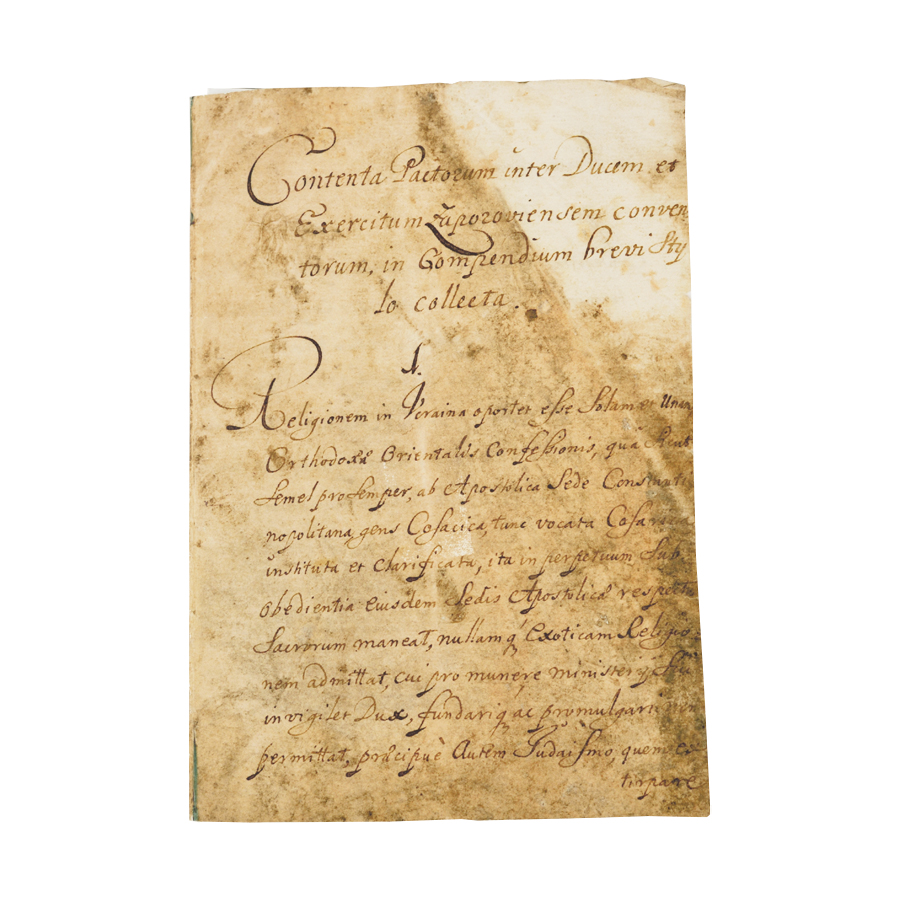 Contenta Pactorum inter Ducem et
Exercitum Zaporoviensem conven
torum, in Compendium brevi Sty
lo collecta.
1.
Religionem in Vcraina oportet esse Solam et Unam
Orthodoxæ Orientalis Confessionis, quâ sicut
semel pro semper, ab Apostolica Sede Constanti
nopolitana, gens Cosacica, tunc vocata Cosarica
instituta et clarificata, ita in perpetuum sub
obedientia eiusdem Sedis Apostolicæ respectu
Sacrorum maneat, nullam q́ Exoticam Religio
nem admittat, cui pro munere ministerij sui
invigilet Dux, fundariq ac promulgari non
permittat, præcipuè Autem Judaismo, quem ex
tirpare